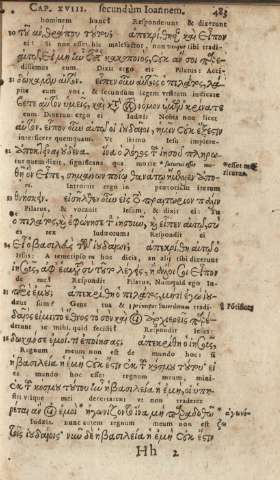 CAP. XVIII. secundùm Ioannem. 485
hominem hunc? Responderunt & dixerunt
30 τοῦ ἀνθρώπου τούτου ἀπεκρίθησαν καὶ εἶπον
ei: Si non esset hic malefactor, non tibi tradi-
αὐτῷ, εἰ μὴ ἦν οὗτος κακοποιὸς, οὐκ ἄν σοι
dissimus eum Dixit ergo eis Pilatus: Acci-
31 αὐτόν. εἶπεν οὖν αὐτοῖς ὁ πιλᾶτος, λά-
pite eum vos, & secundum legem vestram iudicate
ὑμεῖς, καὶ κατὰ τὸν νόμον ὑμῶν κρίνατε
eum Dixerunt ergo ei Iudaei: Nobis non licet
αὐτόν. εἶπον οὖν αὐτῷ οἱ ἰουδαῖοι, ἡμῖν οὐκ ἔξεστιν
interficere quemquam. Vt sermo Iesu imple-
32 ἀποκτεῖναι οὐδένα. ἵνα ὁ λόγος τοῦ ἰησοῦ πληρω-
retur quem dixit, significans qua morte
θῇ ὃν εἶπε, σημαίνων ποίῳ θανάτῳ ἤμελλεν ἀπο-
Introiuit ergo in praetorium iterum
33 θνήσκειν. εἰσῆλθεν οὖν εἰς τὸ πραιτώριον πάλιν
Pilatus, & vocauit Iesum, & dixit ei: Tu
ὁ πιλᾶτος, καὶ ἐφώνησε τὸν ἰησοῦν, καὶ εἶπεν αὐτῷ, σὺ
es rex Iudaeorum? Respondit ei
34 εἶ ὁ βασιλεὺς τῶν ἰουδαίων; ἀπεκρίθη αὐτῷ ὁ
Iesus: A temetipso hoc dicis, an alij tibi dixerunt
ἰησοῦς, ἀφ' ἑαυτοῦ σὺ τοῦτο λέγεις, ἢ ἄλλοι σοι εἶπον
de me? Respondit Pilatus, Numquid ego Iu-
35 περὶ ἐμοῦ; ἀπεκρίθη ὁ πιλᾶτος, μήτι ἐγὼ ἰου-
daeus sum? Gens tua & tradi-
δαῖός εἰμι; τὸ ἔθνος τὸ σὸν καὶ οἱ ἀρχιερεῖς παρέδω-
derunt te mihi, quid fecisti? Respondit Iesus:
36 σε ἐμοί. τί ἐποίησας; ἀπεκρίθη ὁ ἰησοῦς,
Regnum meum non est de mundo hoc: si
ἡ βασιλεία ἡ ἐμὴ οὐκ ἔστιν ἐκ τοῦ κόσμου τούτου εἰ
ex mundo hoc esset regnum meum, mini-
ἐκ τοῦ κόσμου τούτου ἦν ἡ βασιλεία ἡ ἐμὴ, οἱ ὑπη-
stri vtique mei decertarent vt non traderer
ρέται ἂν οἱ ἐμοὶ ἠγωνίζοντο ἵνα μὴ παραδοθῶ
Iudaeis. nunc autem regnum meum non est
τοῖς ἰουδαίοις νῦν δὲ ἡ βασιλεία ἡ ἐμὴ οὐκ ἔστιν
Hh 2